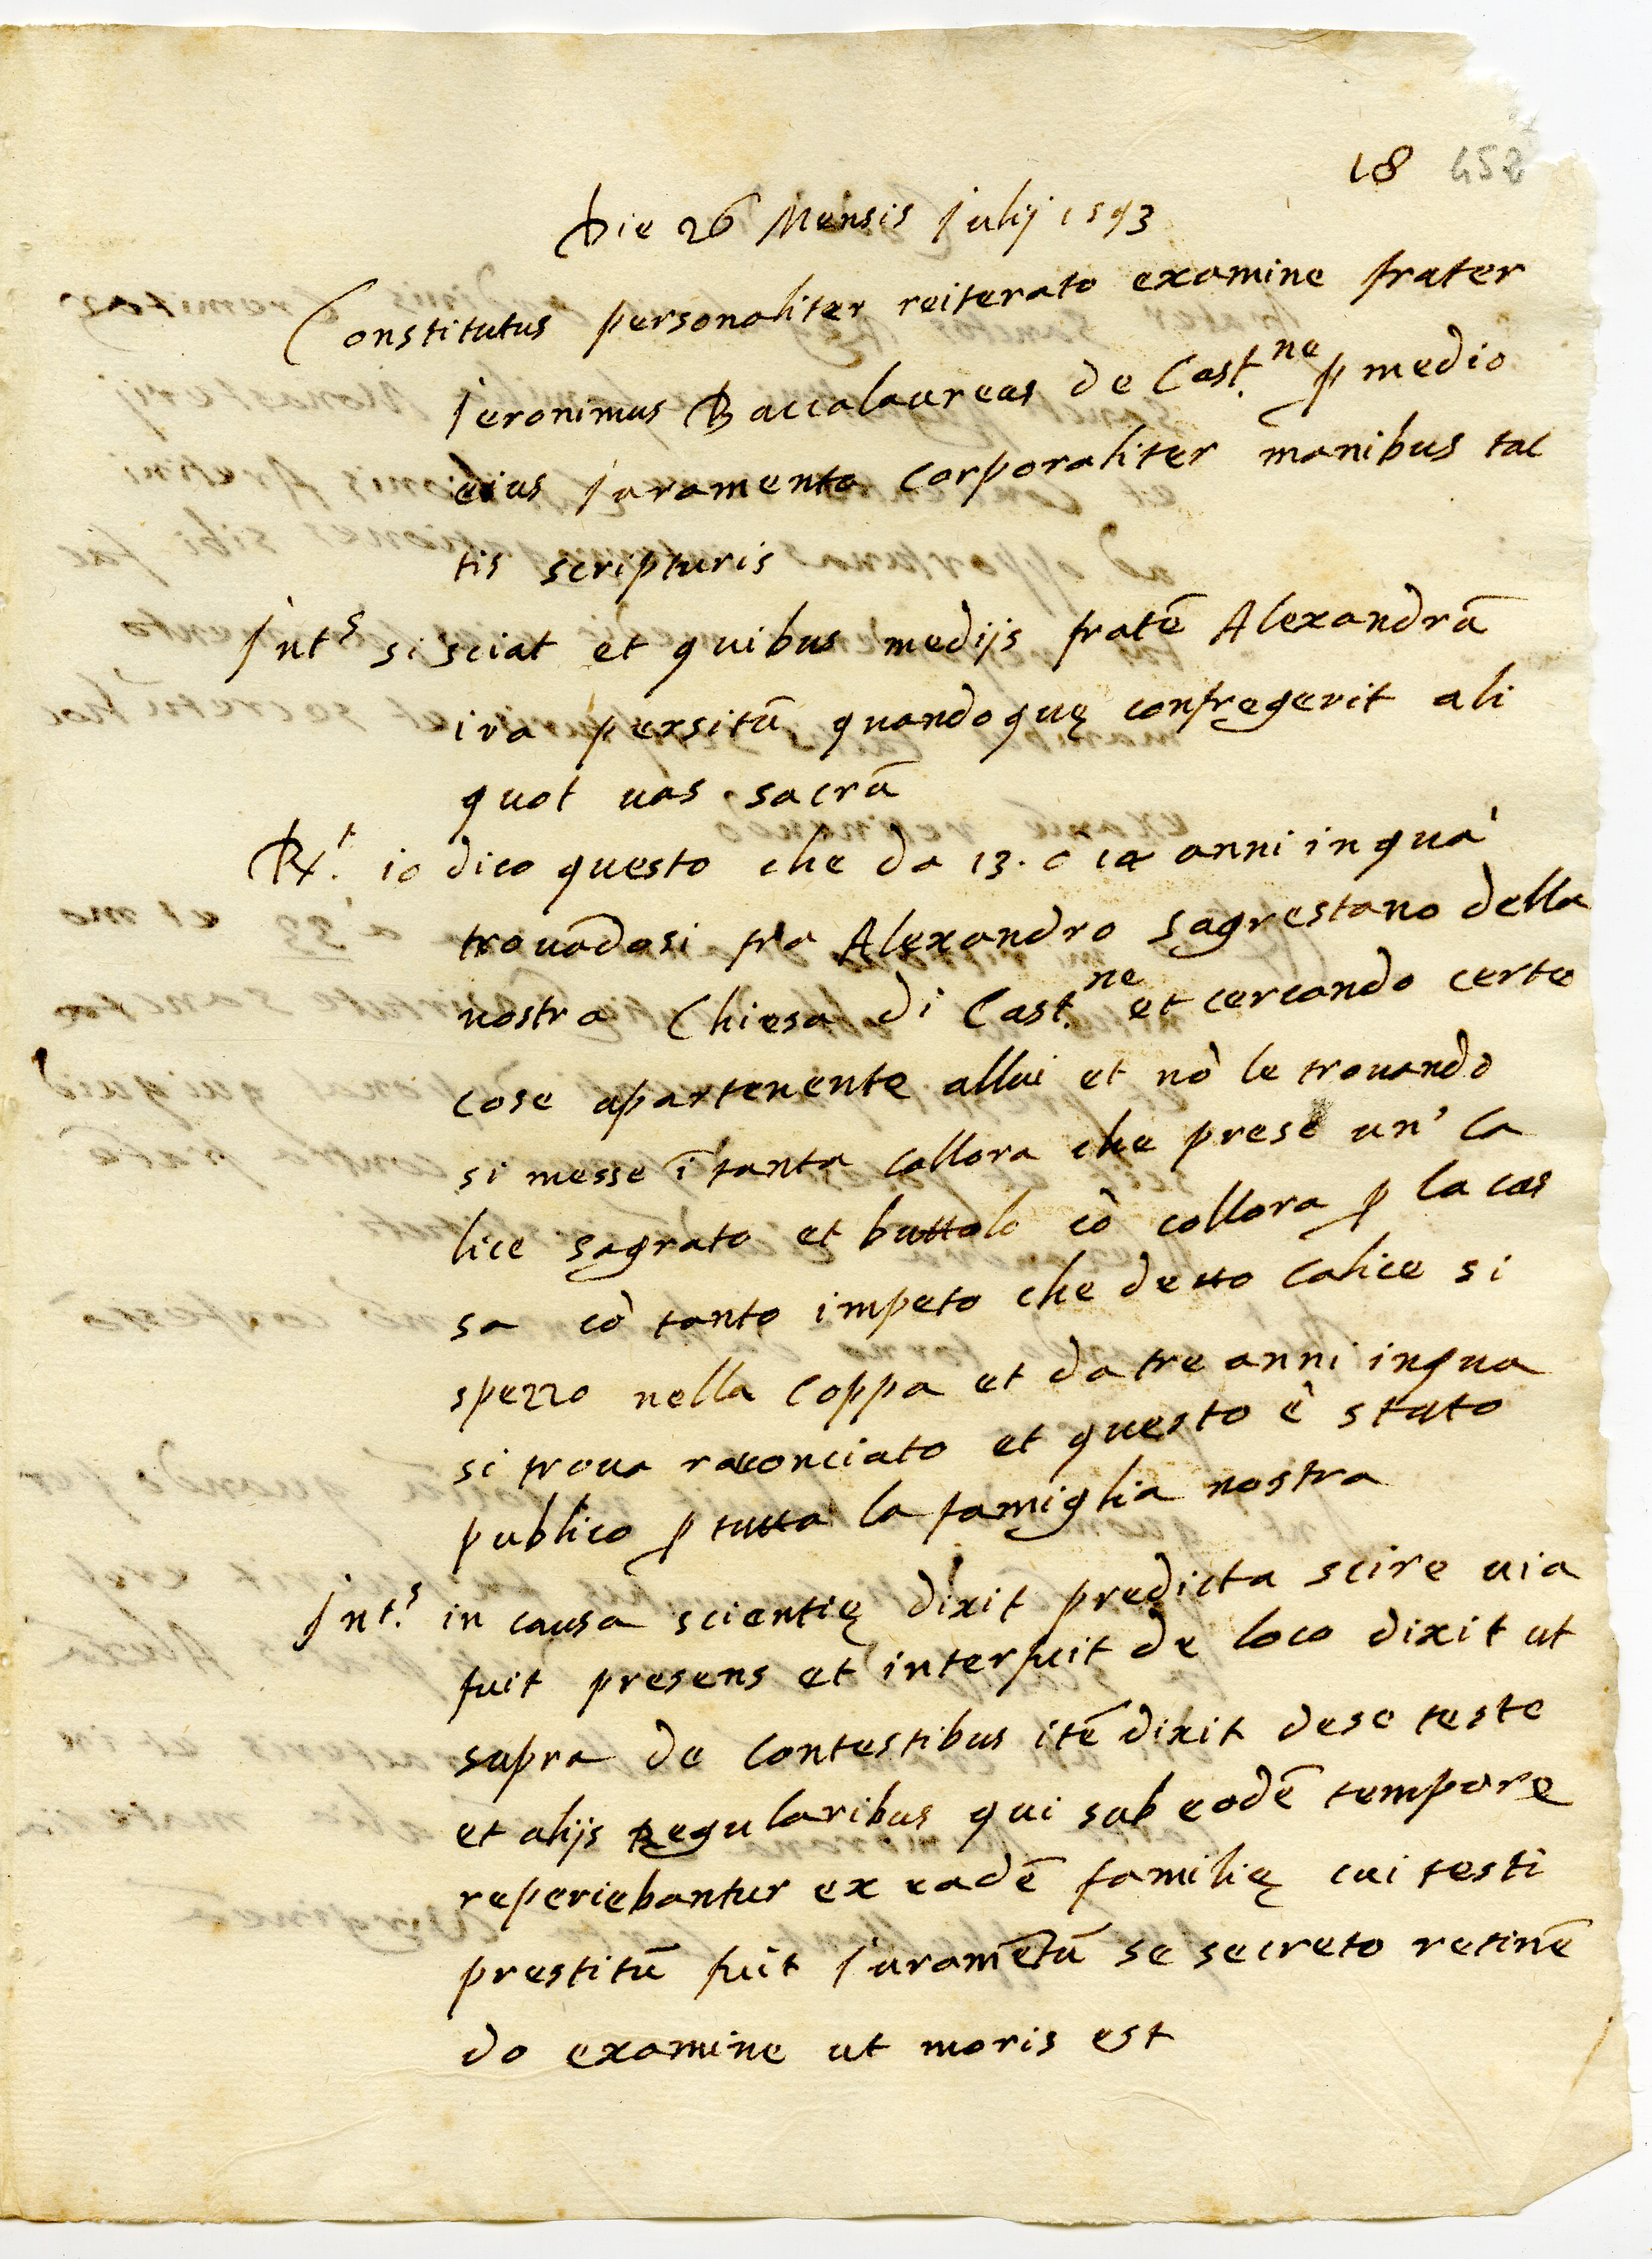 18 452
Die 26 Mensis Julij 1593
Constitutus personaliter reiterato examine frater
Jeronimus Baccalaureas de Cast.ne p medio
eius Juramento corporaliter manibus tac
tis scripturis
Int.s si sciat et quibus medijs fratē Alexandrū
ira persitū quandoquę confregerit ali
quot uas sacrū
Rx.t io dico questo che da 13. ò 14 anni in quà
trouādosi fra Alexandro sagrestano della
nostra Chiesa di Cast.ne et cercando certe
cose apartenente allui et nō le trouando
si messe ī tanta collora che prese un' ca
lice sagrato et buttolo cō collora p la cas
sa cō tanto impeto che detto calice si
spezzo nella coppa et da tre anni inqua
si troua raconciato et questo è stato
publico p tutta la famiglia nostra
Int.s in causa scientię dixit predicta scire uia
fuit presens et interfuit de loco dixit ut
supra de contestibus itē dixit dese teste
et alijs Regularibus qui sub eodē tempore
reperiebantur ex eadē familię cui testi
prestitū fuit Juramētū se secreto retinē
do examine ut moris est